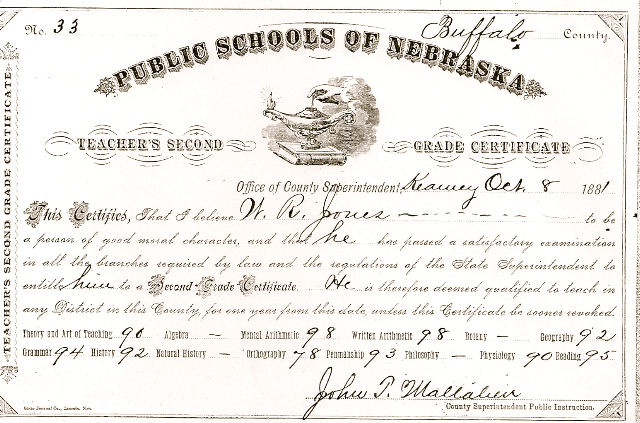 No. 33 Buffalo County.
PUBLIC SCHOOLS OF NEBRASKA
TEACHER'S SECOND GRADE CERTIFICATE
Office of County Superintendent, Kearney Oct. 8 1881
This Certifies, That I believe W. R. Jones to be
a person of good moral character, and that he has passed a satisfactory examination
in all the branches required by law and the regulations of the State Superintendent to
entitle him to a Second Grade Certificate. He is therefore deemed qualified to teach in
any District in this County, for one year from this date, unless this Certificate be sooner revoked.
Theory and Art of Teaching 90 Algebra — Mental Arithmetic 98 Written Arithmetic 98 Botany — Geography 92
Grammar 94 History 92 Natural History — Orthography 78 Penmanship 93 Philosophy — Physiology 90 Reading 95
John T. Mallalieu
State Journal Co., Lincoln, Neb. County Superintendent Public Instruction.
TEACHER'S SECOND GRADE CERTIFICATE